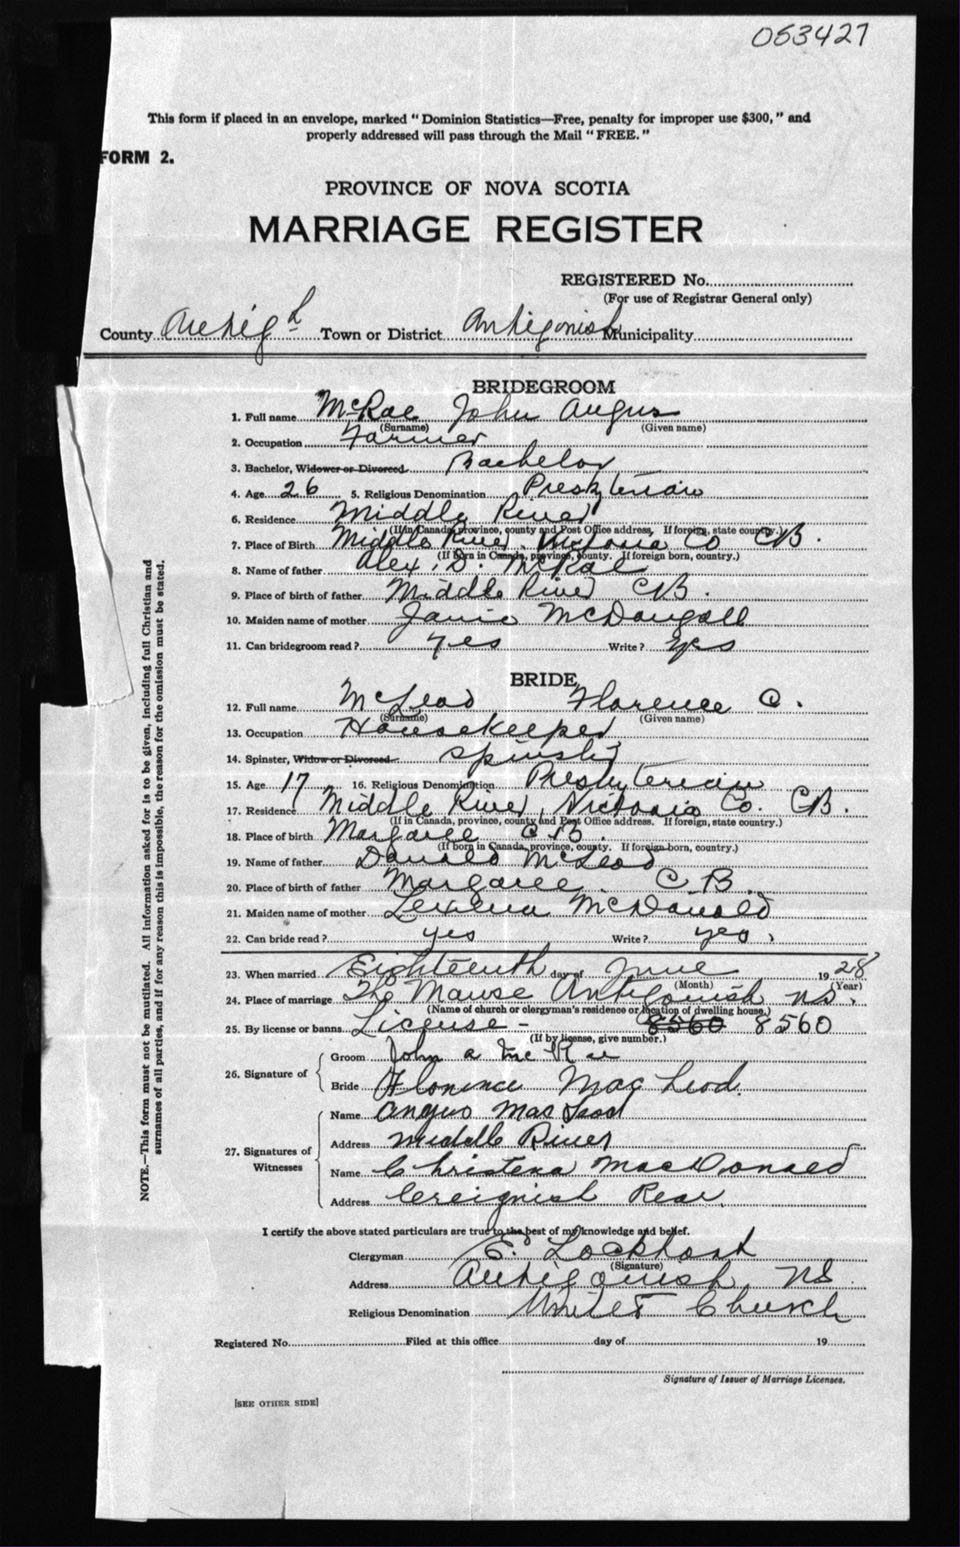 053427
This form if placed in an envelope, marked "Dominion Statistics—Free, penalty for improper use $300," and
properly addressed will pass through the Mail "FREE."
FORM 2.
PROVINCE OF NOVA SCOTIA
MARRIAGE REGISTER
REGISTERED No.
(For use of Registrar General only)
County Antigh Town or District Antigonish Municipality
BRIDEGROOM
1. Full name McRae John Angus
(Surname) (Given name)
2. Occupation Farmer
3. Bachelor, Widower or Divorced Bachelor
4. Age 26 5. Religious Denomination Presbyterian
6. Residence Middle River
(If in Canada, province, county and Post Office address. If foreign, state country.)
7. Place of Birth Middle River Victoria Co CB.
(If born in Canada, province, county. If foreign born, country.)
8. Name of father Alex. D. McRae
9. Place of birth of father Middle River CB.
10. Maiden name of mother Janie McDougall
11. Can bridegroom read? yes Write? yes
BRIDE
12. Full name McLeod Florence C.
(Surname) (Given name)
13. Occupation Housekeeper
14. Spinster, Widow or Divorced spinster
15. Age 17 16. Religious Denomination Presbyterian
17. Residence Middle River, Victoria Co. CB.
(If in Canada, province, county and Post Office address. If foreign, state country.)
18. Place of birth Margaree CB.
(If born in Canada, province, county. If foreign born, country.)
19. Name of father Donald McLeod
20. Place of birth of father Margaree. CB.
21. Maiden name of mother Lexena McDonald
22. Can bride read? yes Write? yes.
23. When married Eighteenth day of June 1928
(Month) (Year)
24. Place of marriage The Manse Antigonish NS.
(Name of church or clergyman's residence or location of dwelling house.)
25. By license or banns License - 8560 8560
(If by license, give number.)
26. Signature of
Groom John A McRae
Bride Florence MacLeod.
27. Signatures of
Witnesses
Name Angus MacLeod
Address Middle River
Name Christena MacDonald
Address Creignish Rear
I certify the above stated particulars are true to the best of my knowledge and belief.
Clergyman E. Lockhart
(Signature)
Address Antigonish, NS
Religious Denomination United Church
Registered No. Filed at this office day of 19
Signature of Issuer of Marriage Licenses.
[SEE OTHER SIDE]
NOTE.—This form must not be mutilated. All information asked for is to be given, including full Christian and
surnames of all parties, and if for any reason this is impossible, the reason for the omission must be stated.